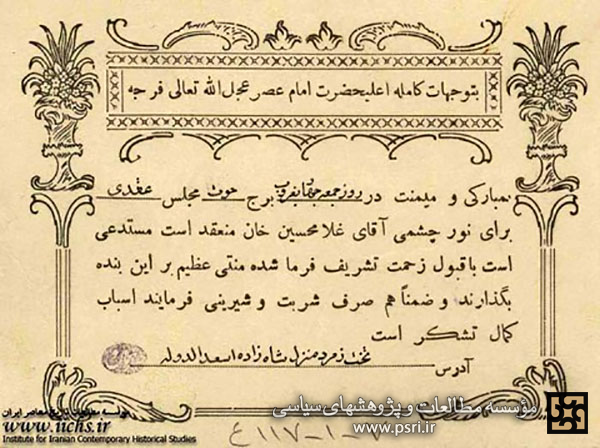 بتوجهات کامله اعلیحضرت امام عصر عجل الله تعالی فرجه
بمبارکی و میمنت در روز جمعه برج حوت مجلس عقدی
برای نور چشمی آقای غلامحسین خان منعقد است مستدعی
است باقبول زحمت تشریف فرما شده منتی عظیم بر این بنده
بگذارند و ضمناً هم صرف شربت و شیرینی فرمایند اسباب
کمال تشکر است
آدرس تخت زمرد منزل شاه زاده اسعدالدوله
مؤسسه مطالعات و پژوهشهای سیاسی
www.psri.ir
مؤسسه مطالعات تاریخ معاصر ایران
www.iichs.ir
Institute for Iranian Contemporary Historical Studies